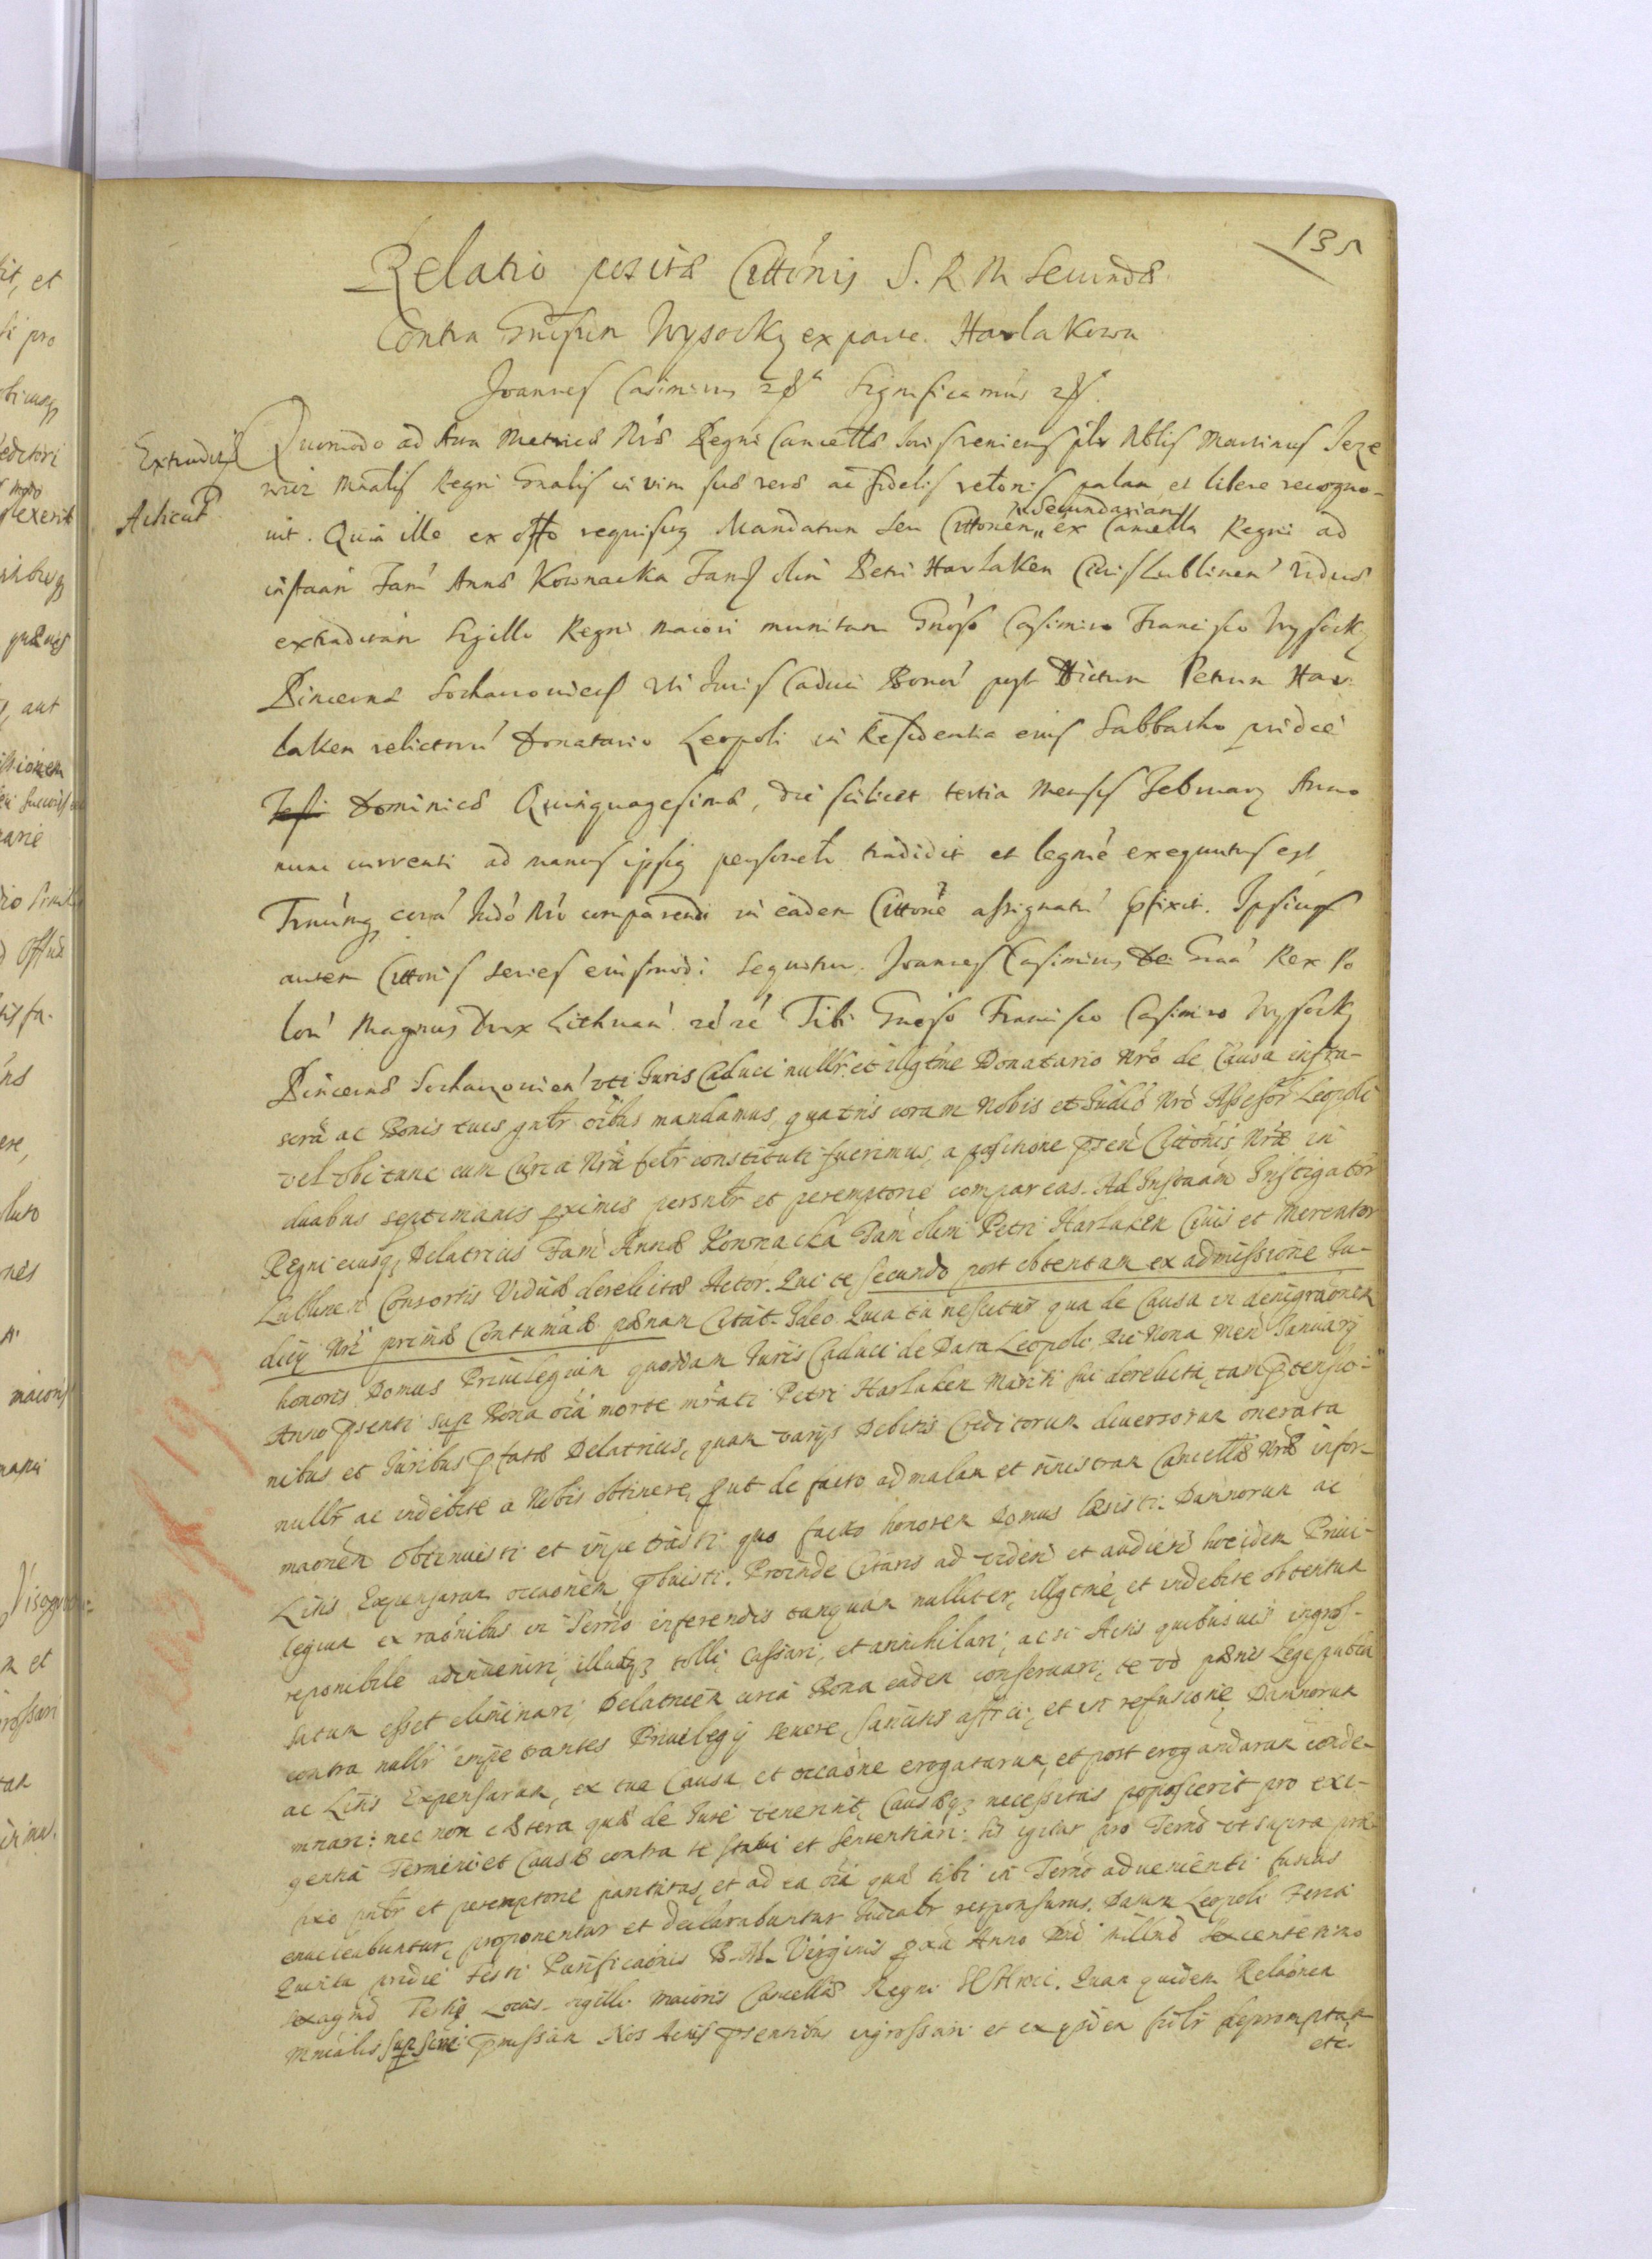 135
Relatio positæ Citt̃onis S. R. M. Secundæ
Contra Gnosum Wysocky ex parte Harlakowa
Joannes Casimirus Significamus
Extradit̃
Quomodo ad Acta Metrices Nræ Regni Cancellæ veniens Nblis Martinus Jeze
wicz Mnralis Regni Gnalis in vim suæ veræ ac fidelis relõnis palam et libere recogno-
Acticat̃
vit. Quia ille ex offo requisitus Mandatum seu Citt̃onem secundariam ex Cancella Regni ad
instaan Fam Annæ Kownacka Fam olim Petri Harlaken Civis Lublinen viduæ
extraditam Sigillo Regni maiori munitam Gnoso Casimiro Francisco Wysocky
Pincernæ Sochaczovien uti Juris Caduci Bonor post dictum Petrum Har
laken relictorum Donatario Leopoli in Residentia eius Sabbatho pridie
Dominicæ Quinquagesimæ, die scilicet tertia mensis February Anno
nunc currenti ad manus ipsius personalr tradidit et legme exequutus est
Trminumq coram Judo Nro comparendi in eadem Citt̃one assignatum pfixit. Ipsius
autem Citt̃onis series eiusmodi sequitur. Joannes Casimirus Dei Graa Rex Po
lon Magnus Dux Lithuan Tibi Gnoso Francisco Casimiro Wysocky
Pincernæ Sochaczovien uti Juris Caduci nullr et illgtme Donatario Nro de Causa infra-
scra ac Bonis tuis gnlr oibus mandamus, quatns coram Nobis et Judio Nro Assessor Leopoli
vel ubi tunc cum Curia Nra felr constituti fuerimus, a positione psen Citt̃onis Nræ in
duabus septimanis pximis persnlr et peremptorie compareas. Ad Instaam Instigator
Regni eiusq, Delatricis Fam Annæ Kownacka Fam olim Petri Harlaken Civis et Mercator
Lublinen Consortis Viduæ derelictæ Actor. Qui te secundo post obtentam ex admissione Ju-
dicy Nri primæ Contumaciæ pænam Citat. Ideo Quia tu nescitur qua de Causa in denigraonem
honoris Domus Privilegium quoddam Juris Caduci de Data Leopoli Die Nona Men January
Anno psenti sup Bona oia morte mrati Petri Harlaken Mariti sui derelicta, tam ptensio-
nibus et Juribus pfatæ Delatricis, quam varys Debitis Creditorum diversorum onerata
nullr ac indebite a Nobis obtinere, put de facto ad malam et sinistram Cancellæ Nræ infor-
maonem obtinuisti et impetrasti quo facto honorem Domus læsisti. Damnorum ac
Litis Expensarum occaonem pbuisti. Proinde Citaris ad viden et audien hocidem Privi-
legium ex raonibus in Termo inferendis tanquam nulliter, illgtme, et indebite obtentum
reponibile adinveniri, illudq tolli, Cassari, et annihilari, ac si Actis quibusvis ingros-
satum esset eliminari, Delatricem circa Bona eadem conservari, te vo pænis Lege publica
contra nullr impetrantes Privilegy severe sancitis affici, et in refusione Damnorum
ac Litis Expensarum, ex tua Causa et occaone erogatarum, et post erogandarum conde-
mnari: nec non cætera quæ de Jure venerint, Causæq necessitas poposcerit pro exi-
gentia Termini et Causæ contra te statui et sententiari: Sis igitur pro Termo ut supra præ
fixo pnlr et peremptorie pariturus, et ad ea oia quæ tibi in Termo advenienti fusius
enucleabuntur, proponentur et declarabuntur Judialr responsurus. Datum Leopoli Feria
Quinta pridie Festi Purificaonis B. M. Virginis pxa Anno Dni Millmo Sexcentesimo
sexagmo Tertio Locus sigilli maioris Cancellæ Regni. Quam quidem Relaonem
Mnralis pmissam Nos Actis psentibus ingrossari et exysdem depromptam
etc.